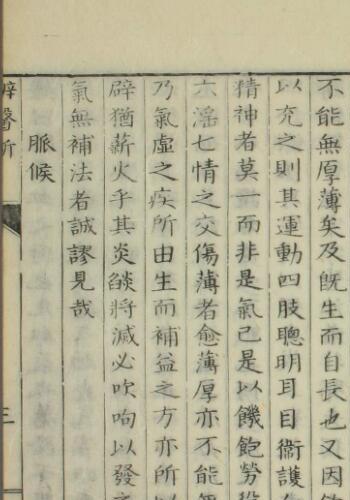 不能無厚薄矣及旣生而自長也又因
以充之則其運動四肢聰明耳目衞護
精神者莫一而非是氣已是以饑飽勞役
六淫七情之交傷薄者愈薄厚亦不能無
乃氣虛之疾所由生而補益之方亦所以
譬猶薪火乎其炎燄將滅必吹呴以發之
氣無補法者誠謬見哉
脈候
醫斷
三